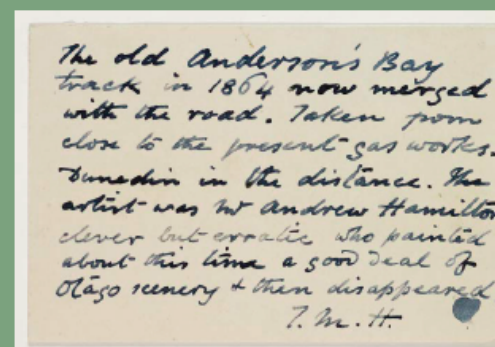 The old Anderson's Bay
track in 1864 now merged
with the road. Taken from
close to the present gas works.
Dunedin in the distance. The
artist was Mr Andrew Hamilton
clever but erratic who painted
about this time a good deal of
Otago scenery & then disappeared
T. M. H.